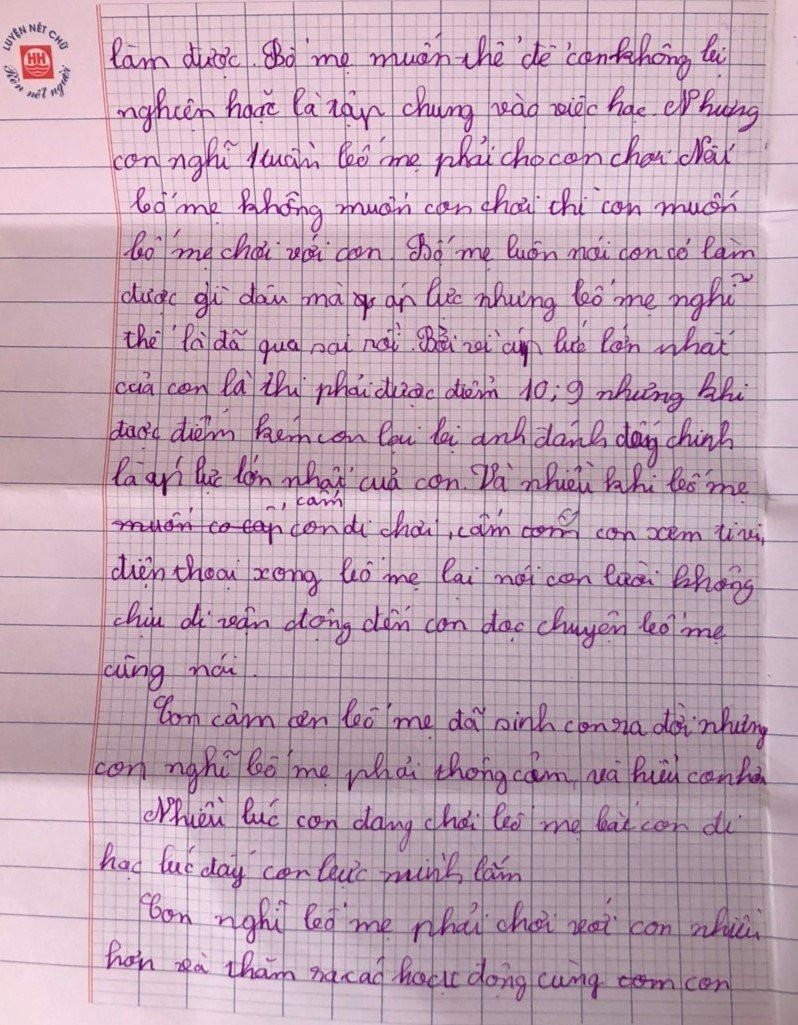 LUYỆN NÉT CHỮ
HH
Rèn nết người
làm được. Bố mẹ muốn thế để con không lại
nghiện hoặc là tập chung vào việc học. Nhưng
con nghĩ 1 tuần bố mẹ phải cho con chơi. Nếu
bố mẹ không muốn con chơi thì con muốn
bố mẹ chơi với con. Bố mẹ luôn nói con có làm
được gì đâu mà áp lực nhưng bố mẹ nghĩ
thế là đã qua sai rồi. Bởi vì áp lực lớn nhất
của con là thi phải được điểm 10; 9 nhưng khi
được điểm kém con lại bị anh đánh đấy chính
là áp lực lớn nhất của con. Và nhiều khi bố mẹ
muốn co cấp, cấm con đi chơi, cấm con xem ti vi,
điện thoại xong bố mẹ lại nói con lười không
chịu đi vận động đến con đọc chuyện bố mẹ
cũng nói.
Con cảm ơn bố mẹ đã sinh con ra đời nhưng
con nghĩ bố mẹ phải thông cảm, và hiểu con hơn
Nhiều lúc con đang chơi bố mẹ bắt con đi
học lúc đấy con bực mình lắm
Con nghĩ bố mẹ phải chơi với con nhiều
hơn và thăm ra các hoạt động cùng con